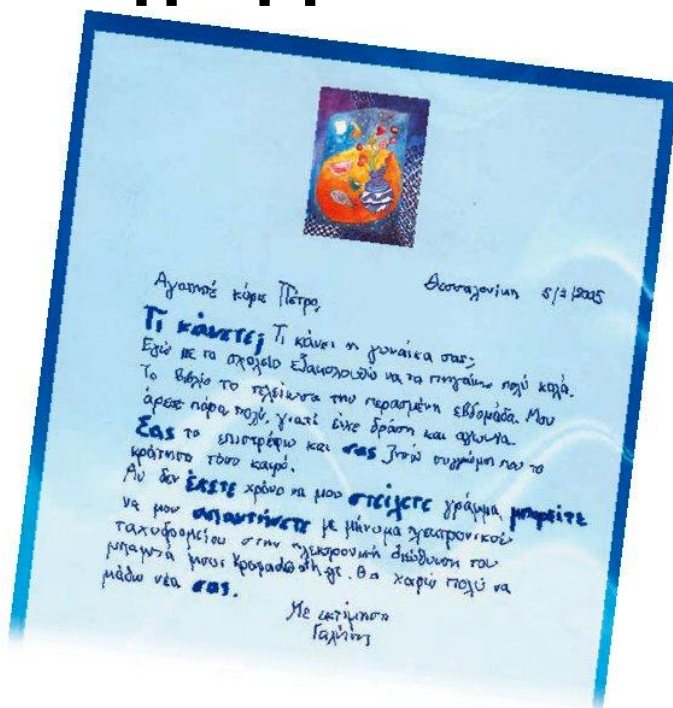 Θεσσαλονίκη 5/2/2005
Αγαπητέ κύριε Πέτρο,
Τι κάνετε; Τι κάνει η γυναίκα σας;
Εγώ με το σχολείο εξακολουθώ να τα πηγαίνω πολύ καλά.
Το βιβλίο το τελείωσα την περασμένη εβδομάδα. Μου
άρεσε πάρα πολύ, γιατί είχε δράση και αγωνία.
Σας το επιστρέφω και σας ζητώ συγγνώμη που το
κράτησα τόσο καιρό.
Αν δεν έχετε χρόνο να μου στείλετε γράμμα μπορείτε
να μου απαντήσετε με μήνυμα ηλεκτρονικού
ταχυδρομείου στην ηλεκτρονική διεύθυνση του
μπαμπά μου: Θα χαρώ πολύ να
μάθω νέα σας.
Με εκτίμηση
Γαλήνη